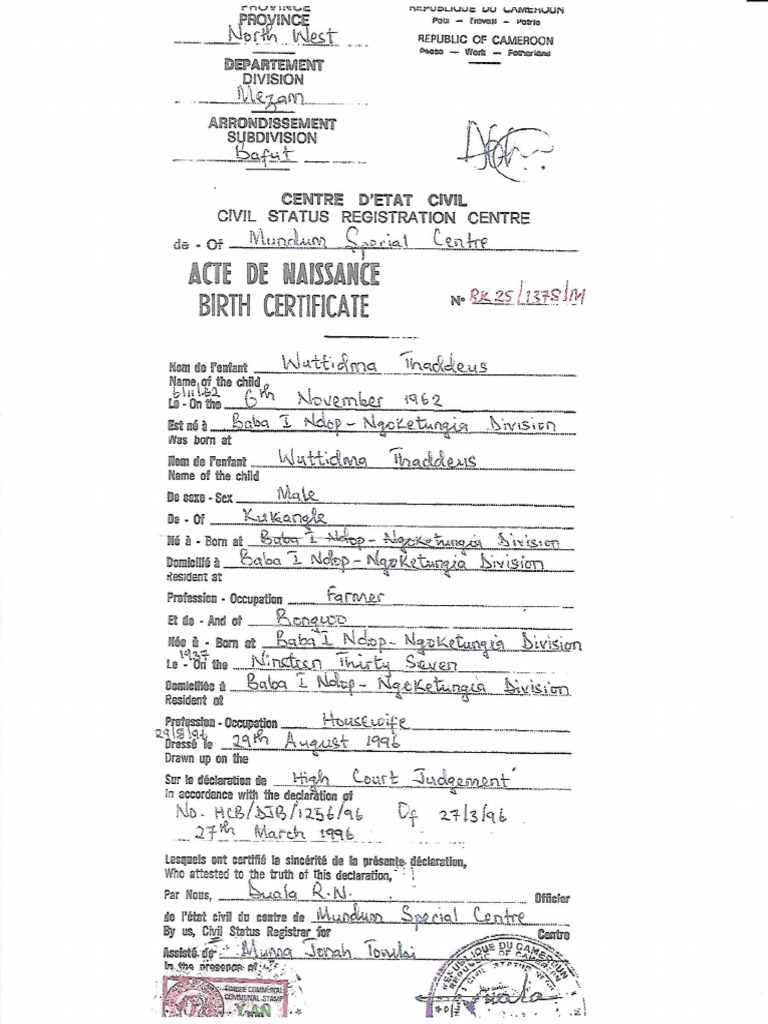 PROVINCE
PROVINCE
North West
REPUBLIQUE DU CAMEROUN
Paix — Travail — Patrie
REPUBLIC OF CAMEROON
Peace — Work — Fatherland
DEPARTEMENT
DIVISION
Mezam
ARRONDISSEMENT
SUBDIVISION
Bafut
CENTRE D'ETAT CIVIL
CIVIL STATUS REGISTRATION CENTRE
de - Of Mundum Special Centre
ACTE DE NAISSANCE
BIRTH CERTIFICATE
N° RK 25/1378/M
Nom de l'enfant Wuttidma Thaddeus
Name of the child
6/11/62
Le - On the 6th November 1962
Est né à Baba I Ndop - Ngoketungia Division
Was born at
Nom de l'enfant Wuttidma Thaddeus
Name of the child
De sexe - Sex Male
De - Of Kukangle
Né à - Born at Baba I Ndop - Ngoketungia Division
Domicilié à Baba I Ndop - Ngoketungia Division
Resident at
Profession - Occupation Farmer
Et de - And of Bongwo
Née à - Born at Baba I Ndop - Ngoketungia Division
1937
Le - On the Nineteen Thirty Seven
Domiciliée à Baba I Ndop - Ngoketungia Division
Resident at
Profession - Occupation Housewife
29/8/96
Dressé le 29th August 1996
Drawn up on the
Sur la déclaration de High Court Judgement
In accordance with the declaration of
No. HCB/DJB/1256/96 Of 27/3/96
27th March 1996
Lesquels ont certifié la sincérité de la présente déclaration,
Who attested to the truth of this declaration,
Par Nous, Duala R.N. Officier
de l'état civil du centre de Mundum Special Centre
By us, Civil Status Registrar for Centre
Assisté de Munna Jonah
In the presence of
TIMBRE COMMUNAL
COMMUNAL STAMP
REPUBLIQUE DU CAMEROUN
REPUBLIC OF CAMEROON
CIVIL STATUS